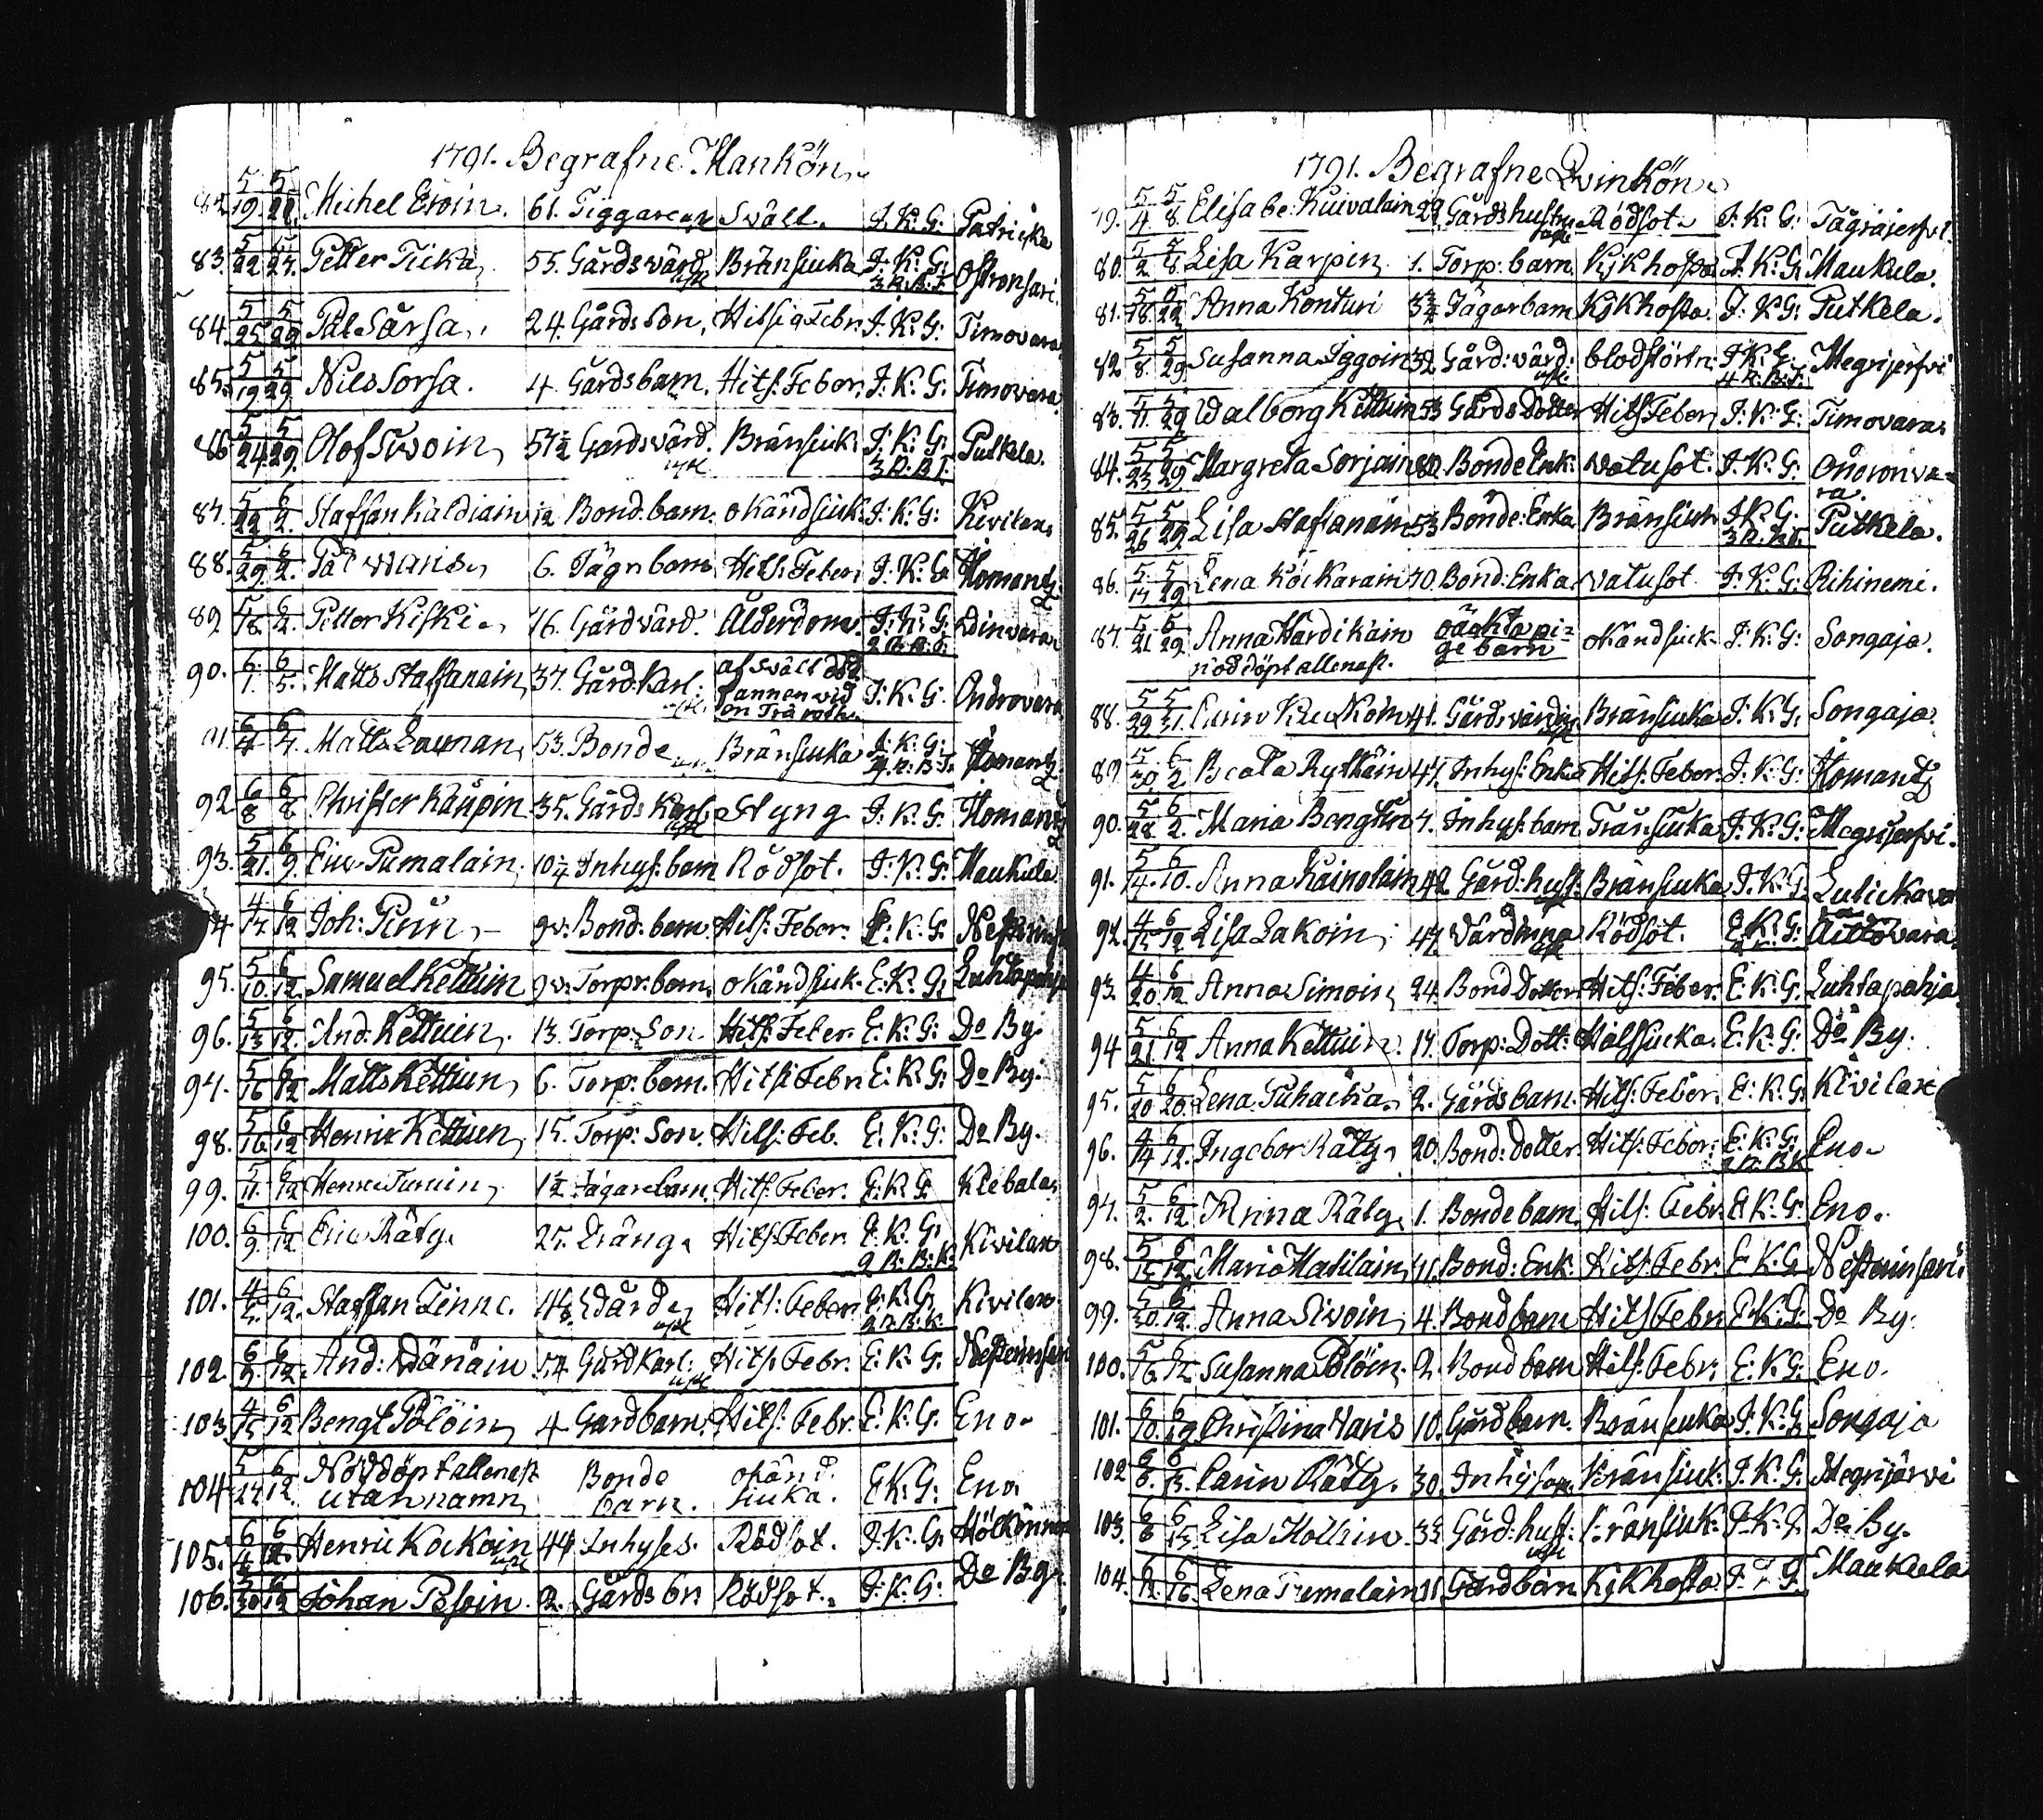 1791. Begrafne Mankön
82. 5/19 5/22 Michel Eroin. 61. Tiggare Svält. I. K. G: Patricka
83. 5/22 5/27 Petter Ticka 55. Gårdsvärd Bränsiuka I. K. G: Ostronsari
3 R. B. I.
84. 5/25 5/29 Pål Sårsa 24. Gårds Son, Hitsig Febr. I: K: G: Timovara
85. 5/19 5/29 Nils Sorsa. 4. Gårdsbarn. Hits: Feber. I: K: G: Timovara
86 5/24 5/29 Olof Sivoin 57½ Gårdsvärd. Bränsiuk. I: K: G: Putkela.
3 R. B. I.
87. 5/22 6/2. Staffan Häldiain 12 Bond. barn. okändsiuk. I: K: G: Kivilax
88. 5/29 6/2. Pål Waris 6. Tägn barn Hits: Feber. I: K: G: Ilomantz
89 5/18. 6/2. Petter Kiski 76. Gårdvärd. Ålderdom. I: K: G:
90. 6/1. 6/5. Matts Staffanain 37. Gård. Karl: af svält död I: K: G: Ondrovara
funnen vid
en Trä
91. 6/4 6/7. Matts Layman 53. Bonde Bränsiuka I: K: G: Ilomantz
4 R. B. I.
92 6/8 6/8 Christer Kaupin 35. Gårds Karl Styng I: K: G: Ilomantz
93. 5/21. 6/9. Eric Pumalain. 10¼ Inhys: barn Rödsot. I: K: G: Maukula
94 4/17 6/12 Joh: Piiin 9v. Bond: barn. Hits: Feber. E: K: G:
95. 5/10. 6/12. Samuel Kettuin 9v: Torpr: barn. okändsiuk. E: K: G: Luhtapohja
96. 5/13 6/12. And. Kettuin. 13. Torp: Son. Hits: Feber. E: K: G: Do By.
97. 5/16 6/12 Matts Kettuin 6. Torp: barn. Hits: Febr. E: K: G: Do By.
98. 5/16. 6/12 Henric Kettuin 15. Torp: Son. Hits: Feb. E: K: G: Do By.
99. 5/11. 6/12 Henric Turuin 1½ Jägarebarn. Hits: Feber. E: K: G: Klebala
100. 6/9. 6/12 Eric Räty 25. Dräng Hits: Feber E: K: G: Kivilax
2 R: B: K:
101. 4/5. 6/12. Staffan Tinne. 48. Värd Hits: Feber E: K: G: Kivilax.
2 R. B. K.
102. 6/9. 6/12. And: Wänäin 54 Gård Karl: Hits: Febr. E: K: G: Nesterinsari
103. 4/15 6/12 Bengt Pölöin 4 Gårdbarn. Hits: Febr. E: K: G: Eno
104 5/27 6/12. Nöddöpt allenast Bonde okänd E: K: G: Eno.
utan namn barn. siuka.
105. 6/4 6/12. Henric Kockoin 44 Inhyses. Rödsot. I: K: G:
106. 5/30 6/12 Johan Pesoin 2. Gårds br. Rödsot. I: K: G: Do By.
1791. Begrafne Qvinkön
79. 5/4 5/8. Elisabe. Kuivalain 29. Gårdshustru Rödsot I: K: G: Tågrajerfvi.
80. 5/2 5/8. Lisa Karpin 1. Torp: barn. Kjkhosta I: K: G: Maukula.
81. 5/18. 5/22 Anna Konturi 3¾ Jägarbarn Kjkhosta: I: K: G: Putkela.
82 5/8. 5/29 Susanna Iggoin 32 Gård: värd: blodstörtn: I: K: G: Megrijerfvi
4 R: B: I:
83. 5/11. 5/29 Walborg Kettuin 53 Gårds Dotter Hits Feber I: K: G: Timovara
84. 5/23 5/29 Margreta Sorjain 80. Bonde Enk: Watusot. I: K: G: Onoronva=
ra.
85. 5/26 5/29 Lisa Stafanain 53 Bonde: Enka Bränsiuk I: K: G: Putkela.
86. 5/17 5/29 Lena Kockarain 70. Bond: Enka Watusot I: K: G: Rihinemi.
87. 5/21 5/29 Anna Hardikain oächta pi= okändsiuk. I: K: G: Songaja.
nöddöpt allenast. ge barn
88. 5/29 5/31. Carin Kuckoin 41. Gårdsvärdin Bränsiuka I: K: G: Songaja.
89. 5/30. 6/2 Beata Rytkäin 47. Inhys: Enka Hits: Feber. I: K: G: Ilomantz
90. 5/28 6/2. Maria Bengtin 7. Inhys: barn Trånsiuka I: K: G: Megrijerfvi.
91. 5/14. 6/10. Anna Kainolain 42 Gård: hust: Bränsiuka I: K: G:
92. 4/15 6/12 Lisa Lakoin 47. Värdinna Rödsot. E: K: G:
93. 4/20. 6/12 Anna Simoin 24. Bond Dotter Hits: Feber. E: K: G: Luhtapohja
94 5/21. 6/12 Anna Kettuin. 17. Torp: Dott: E: K: G: Do By.
95. 5/20 6/20 Lena Puhacka 2. Gårdsbarn. Hits: Feber. E: K: G: Kivilax
96. 4/14 6/12. Ingebor Räty 20. Bond: Dotter. Hits: Feber: E: K: G: Eno
2 R. B. K
97. 5/2. 6/12 Anna Räty. 1. Bondebarn. Hits: Febr. E: K: G: Eno.
98. 5/15 6/12 Maria Matilain 71. Bond: Enk. Hits: Febr. E: K: G: Nesterinsari
99. 5/30. 6/12. Anna Sivoin 4. Bondbarn Hits Febr. E: K: G: Do By.
100. 5/16. 6/12 Susanna Pölöin. 2. Bondbarn Hits: Febr: E: K: G: Eno.
101. 6/10. Christina Waris 10. Gårdbarn. Bränsiuka I: K: G: Songaja
102 6/6. 6/13. Carin Räty. 30. Inhys Bränsiuk. I: K: G: Megrijärvi
103. 6/8 6/13 Lisa 33 Gård: hust: Bränsiuk: I: K: G: Do By.
104. 6/12. 6/16. Lena Pumalain 11 Gårdbarn Kjkhosta I: K: G. Maukula